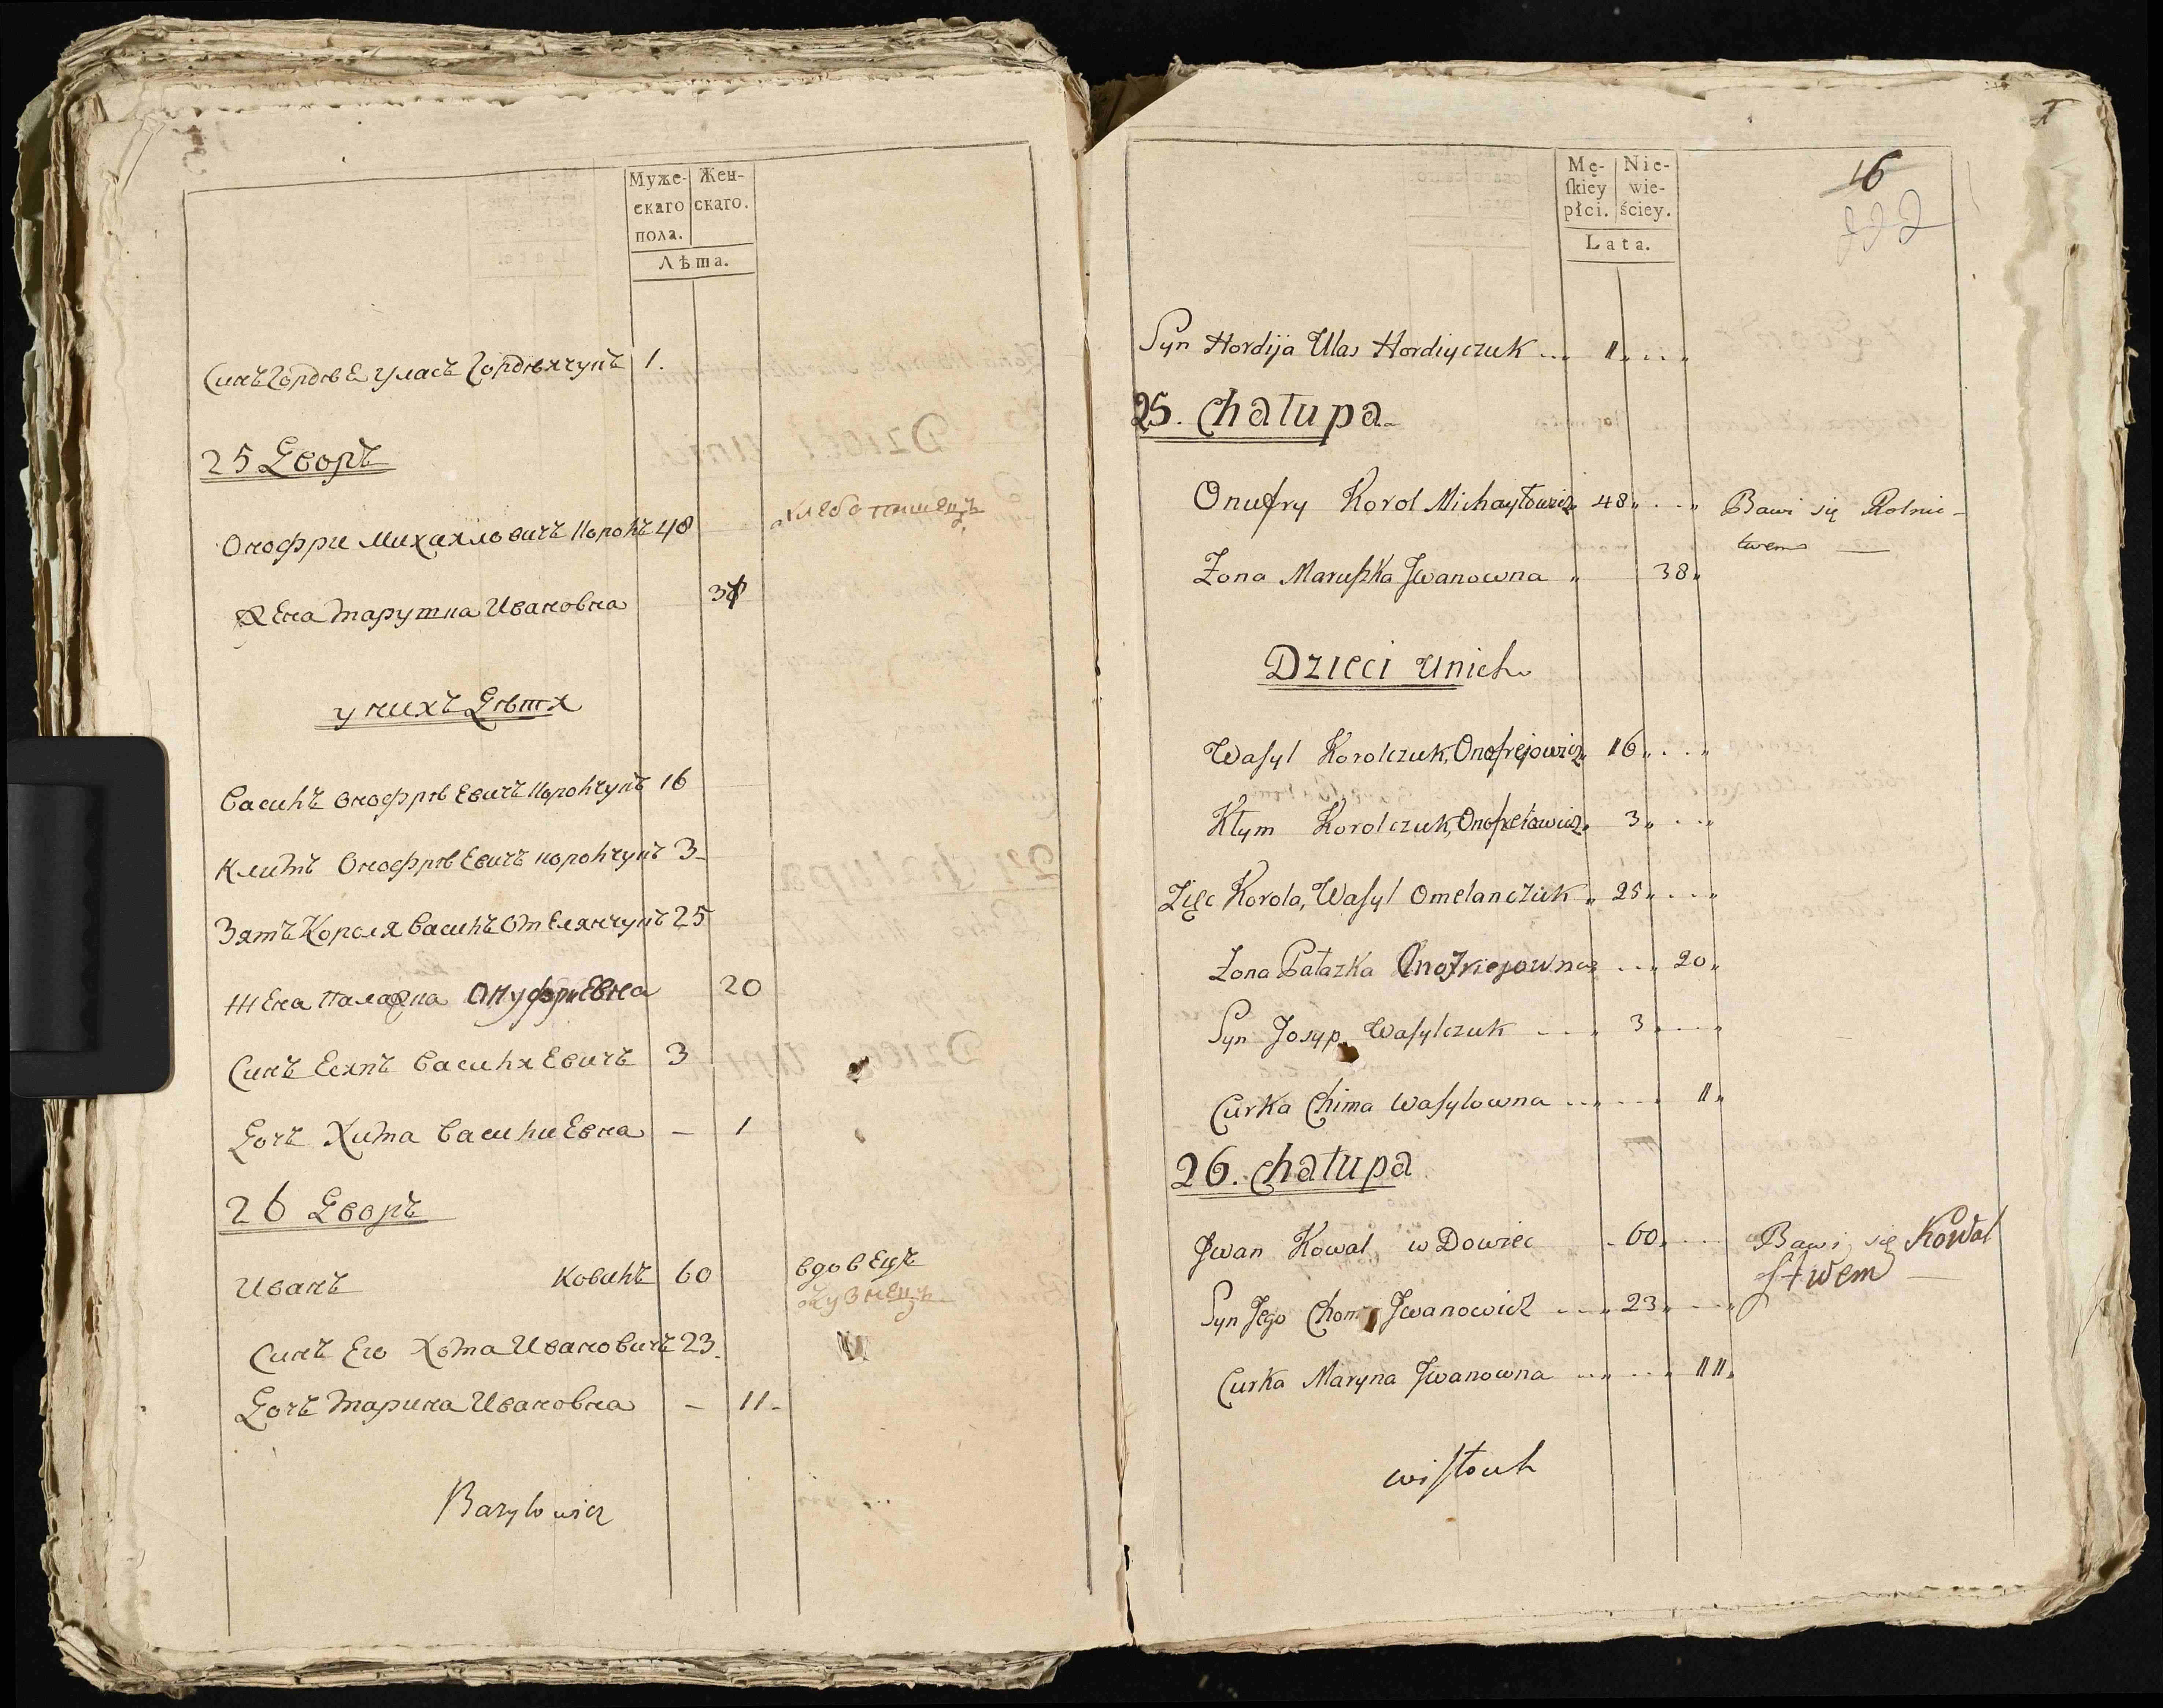 Муже-
скаго
пола.
Жен-
скаго.
Лѣта.
Синъ Гордѣе Уласъ Гордѣячукъ 1.
25 Дворъ
Онофри Михайловичъ Король 48 хлебопашецъ
Жена Марушка Ивановна 38
у нихъ Дѣтя
Василь Онофрѣевичъ Корольчукъ 16
Климъ Онофрѣевичъ Корольчукъ 3
Зять Короля Василь Омелянчукъ 25
Жена Палажка Онуфриевна 20
Синъ Есипъ Васильевичъ 3
Дочъ Хима Васильевна — 1
26 Дворъ
Иванъ Коваль 60 вдовецъ
Кузнецъ
Синъ Его Хома Ивановичъ 23
Дочъ Марина Ивановна — 11
Bazylowicz
16
222
Mę-
ſkiey
płci.
Nie-
wie-
ściey.
Lata.
Syn Hordija Ulas Hordiyczuk 1
25. Chałupa
Onufry Korol Michayłowicz 48 Bawi się Rolnic-
twem
Żona Maruszka Jwanowna 38
Dzieci unich
Wasyl Korolczuk, Onofrejowicz 16
Kłym Korolczuk, Onofrejowicz 3
Zięć Korola, Wasyl Omelanczuk 25
Żona Pałazka Onofriejowna 20
Syn Josyp Wasylczuk 3
Curka Chima Wasylowna 1
26. Chałupa
Jwan Kowal wDowiec 60 Bawi się Kował
stwem
Syn Jego Choma Jwanowicz 23
Curka Maryna Jwanowna 11